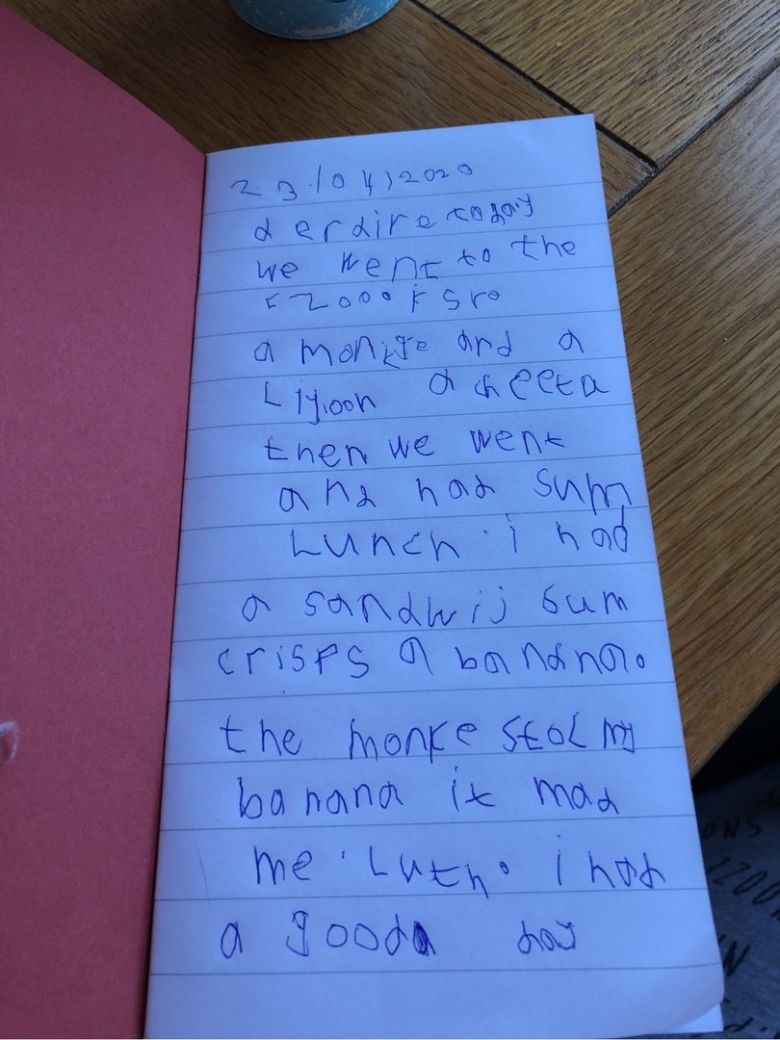 23/04/2020
derdire today
we went to the
a monkye and a
Liyoon a cheeta
then we went
and had sum
Lunch. i had
a sandwij sum
crisps a banana.
the monke stol my
banana it mad
me Luth. i had
a good day